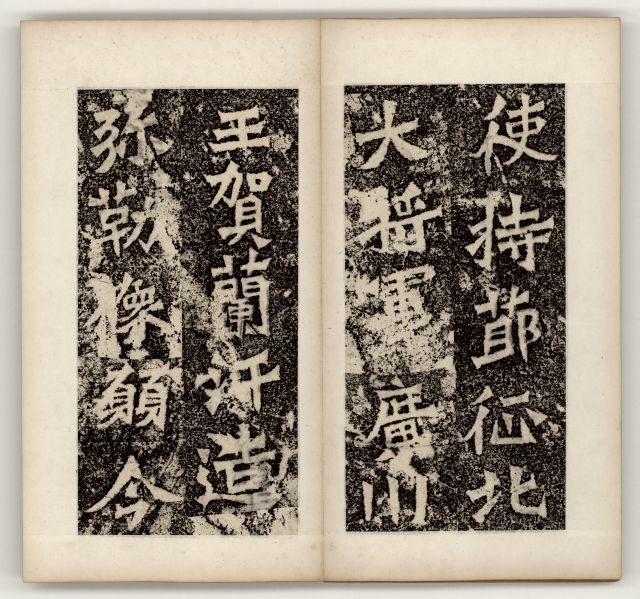 使持莭征北
大將軍廣川
王賀蘭汗造
弥勒像願令